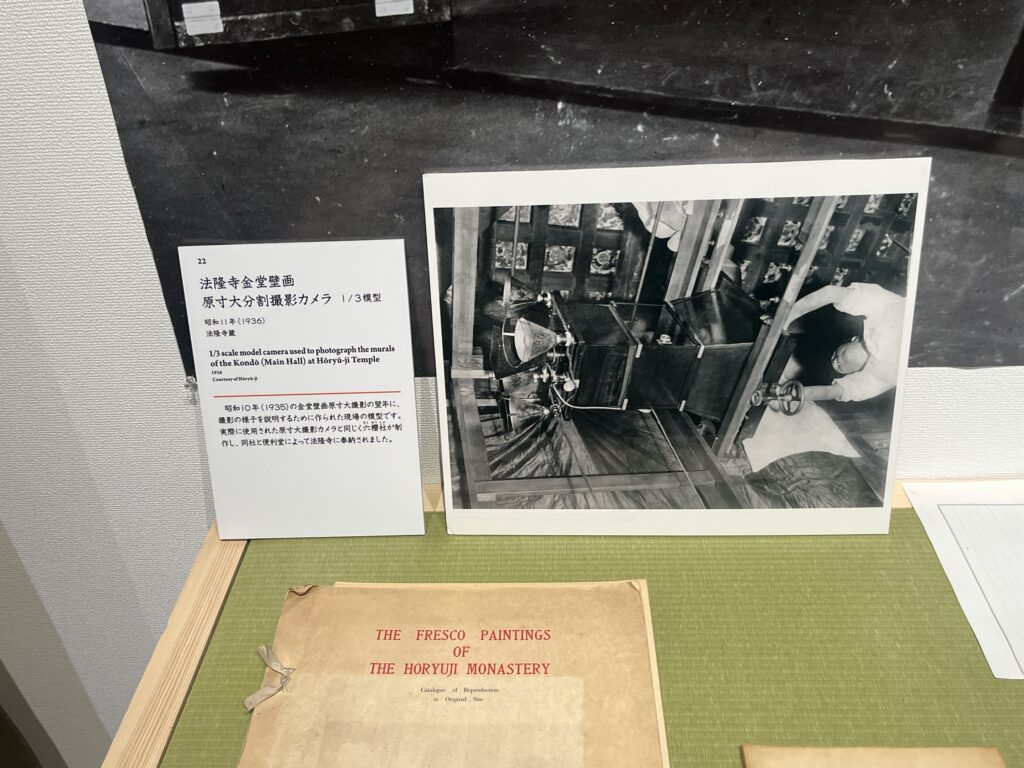 22
法隆寺金堂壁画
原寸大分割撮影カメラ 1/3模型
昭和11年(1936)
法隆寺蔵
1/3 scale model camera used to photograph the murals
of the Kondō (Main Hall) at Hōryū-ji Temple
1936
Courtesy of Hōryū-ji
昭和10年(1935)の金堂壁画原寸大撮影の翌年に、
撮影の様子を説明するために作られた現場の模型です。
実際に使用された原寸大撮影カメラと同じく六櫻社が制
作し、同社と便利堂によって法隆寺に奉納されました。
THE FRESCO PAINTINGS
OF
THE HORYUJI MONASTERY
Catalogue of Reproduction
in Original Size